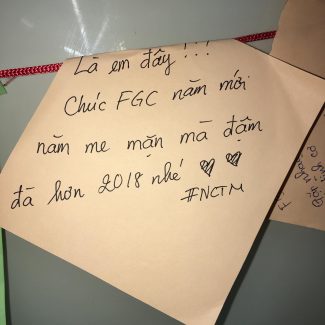 Là em đây!!!
Chúc FGC năm mới
năm me mặn mà đậm
đà hơn 2018 nhé ♡ ♡
#NCTM